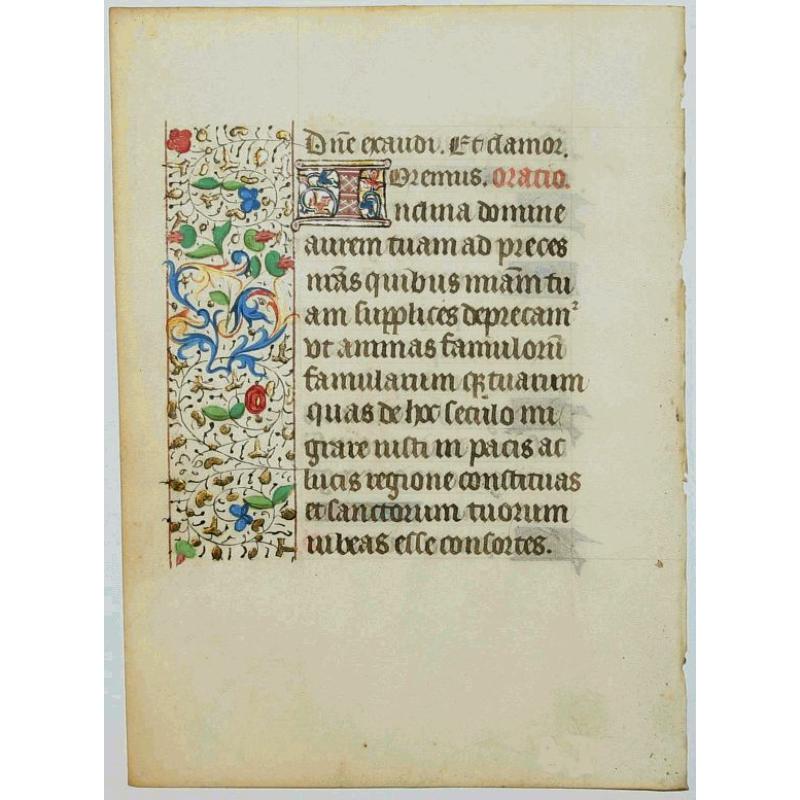 Dn̄e exaudi. Et clamor.
Oremus. Oratio.
Inclina domine
aurem tuam ad preces
nr̄as quibus miām tu
am supplices deprecam²
vt animas famulorū
famularum qȝ tuarum
quas de hoc seculo mi
grare iusti in pacis ac
lucis regione constituas
et sanctorum tuorum
iubeas esse consortes.